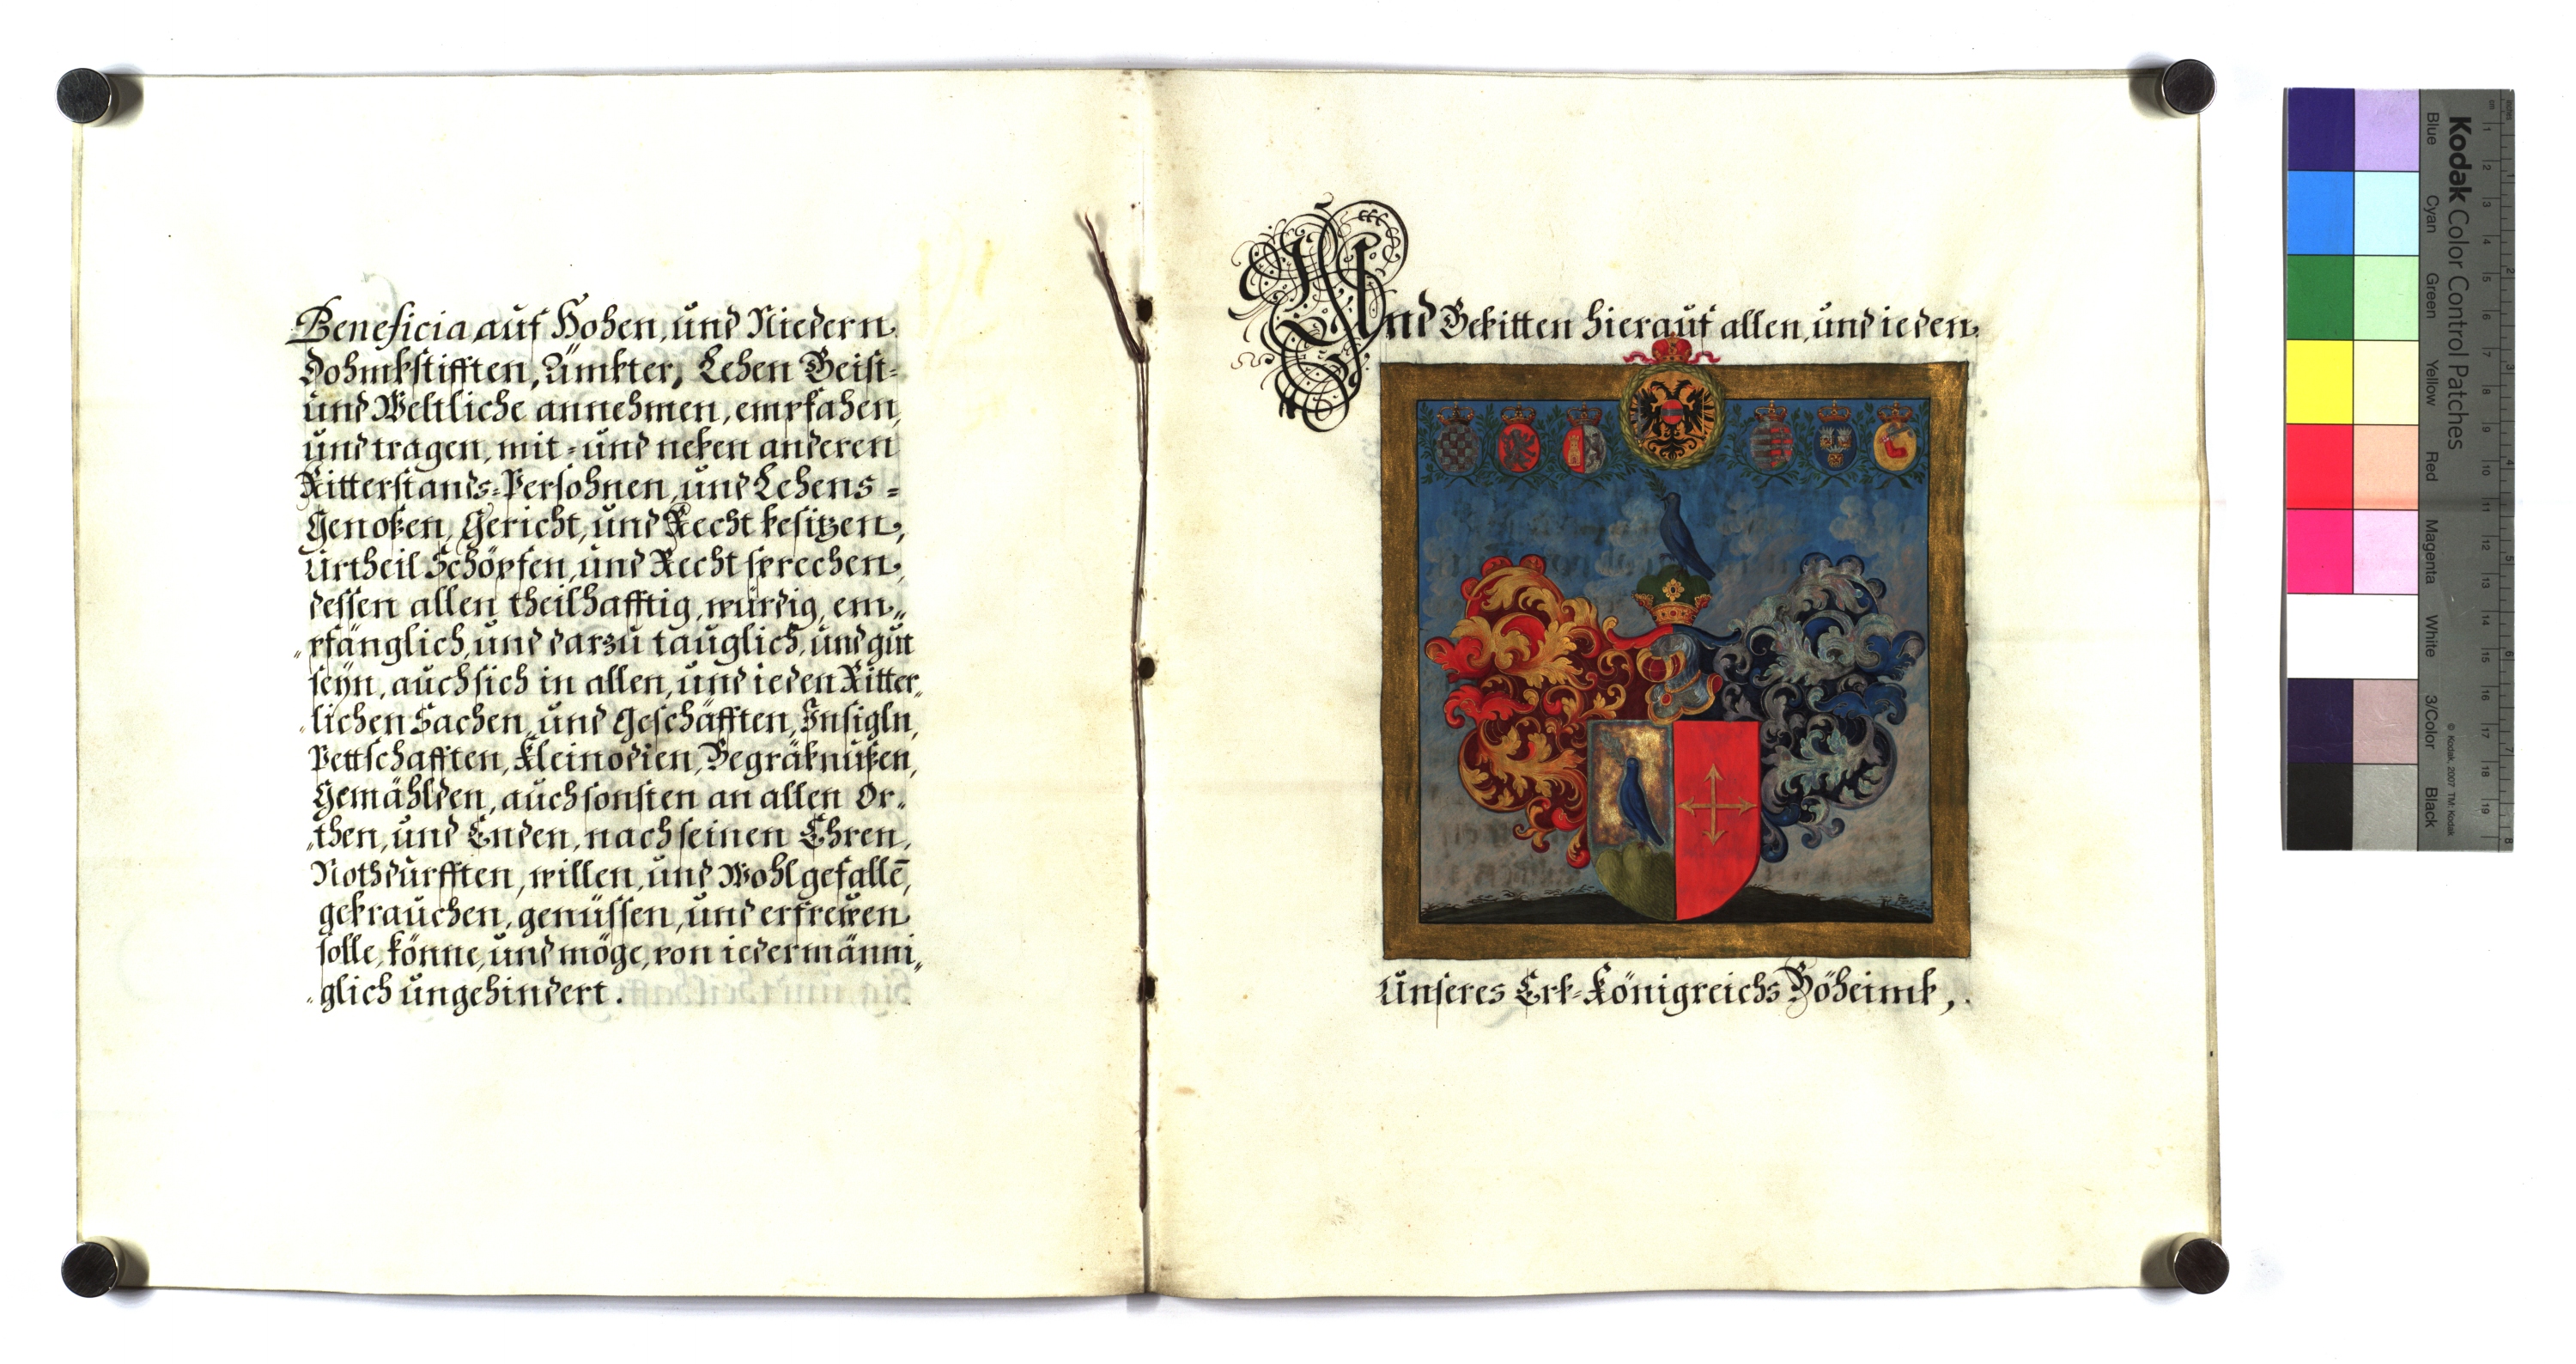 Beneficia auf Hohen, und Niedern
Dohmbstifften, Ämbter, Lehen Geist-
und Weltliche annehmen, empfahen,
und tragen, mit- und neben anderen
Ritterstands-Persohnen, und Lehens-
Genoßen, Gericht, und Recht besitzen,
Urtheil Schöpfen, und Recht sprechen,
dessen allen theilhafftig, würdig, em„
„pfänglich, und darzu tauglich, und gut
seyn, auch sich in allen, und ieden Ritter„
„lichen Sachen, und Geschäfften, Insigln,
Pettschafften, Kleinodien, Begräbnußen,
Gemählden, auch sonsten an allen Or„
„then, und Enden, nach seinen Ehren,
Nothdurfften, willen, und Wohlgefallē,
gebrauchen, genüssen, und erfrewen
solle, könne, und möge, von iedermänni„
„glich ungehindert.
Und Gebitten hierauf allen, und ieden
Unseres Erb-Königreichs Böheimb,
Kodak Color Control Patches
Blue Cyan Green Yellow Red Magenta White 3/Color Black
© Kodak, 2007 TM: Kodak
cm 1 2 3 4 5 6 7 8 9 10 11 12 13 14 15 16 17 18 19
inches 1 2 3 4 5 6 7 8